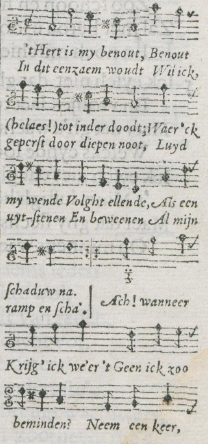 'tHert is my benout, Benout
In dit eenzaem woudt Wil ick,
(helaes!) tot inder doodt; Waer'ck
geperst door diepen noot, Luyd
my wende Volght ellende, Als een
uyt-stenen En beweenen Al mijn
schaduw na.
ramp en scha'.
Ach! wanneer
Krijg' ick we'er 't Geen ick zoo
beminden? Neem een keer,